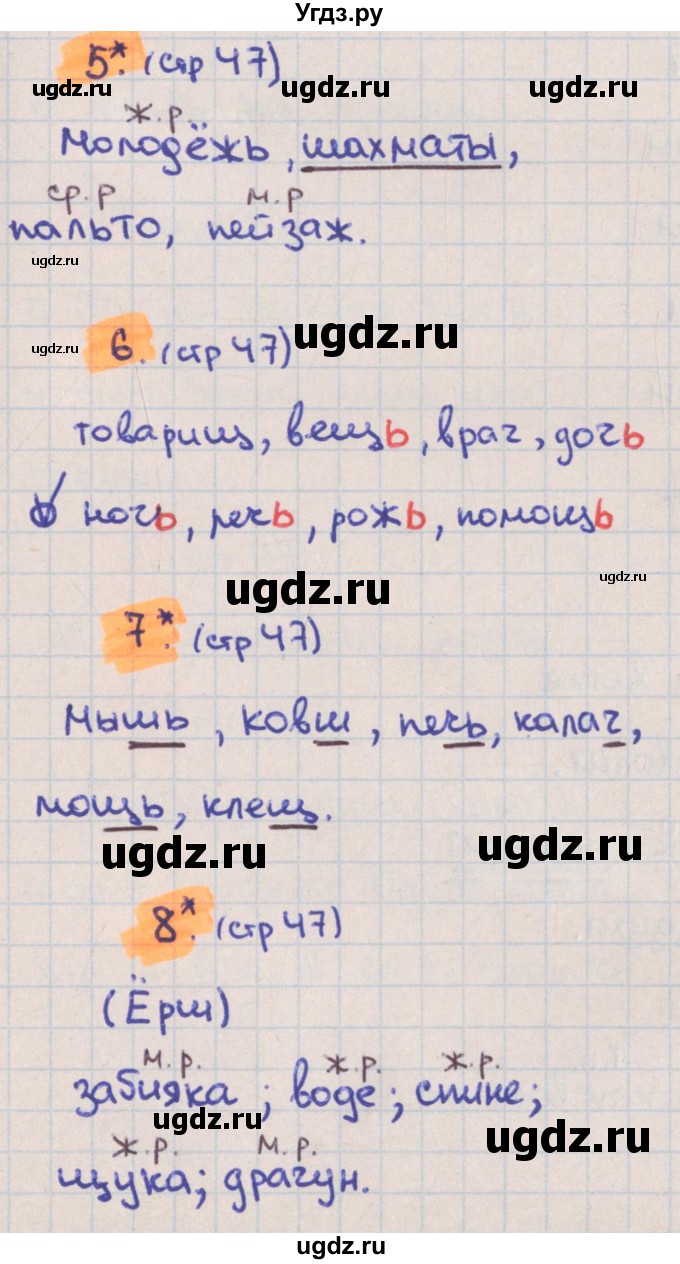 Угдз.ру
5*. (стр 47)
ugdz.ru ugdz.ru ugdz.ru
ж.р.
молодёжь, шахматы,
ср.р м.р
пальто, пейзаж.
ugdz.ru
6. (стр 47)
ugdz.ru ugdz.ru
товарищ, вещь, врач, дочь
ночь, речь, рожь, помощь
ugdz.ru
ugdz.ru
7*. (стр 47)
мышь, ковш, печь, калач,
мощь, клещ.
ugdz.ru ugdz.ru
8*. (стр 47)
(Ёрш)
м.р. ж.р. ж.р.
забияка; воде; спине;
ugdz.ru ugdz.ru
ж.р. м.р.
щука; драчун.
ugdz.ru